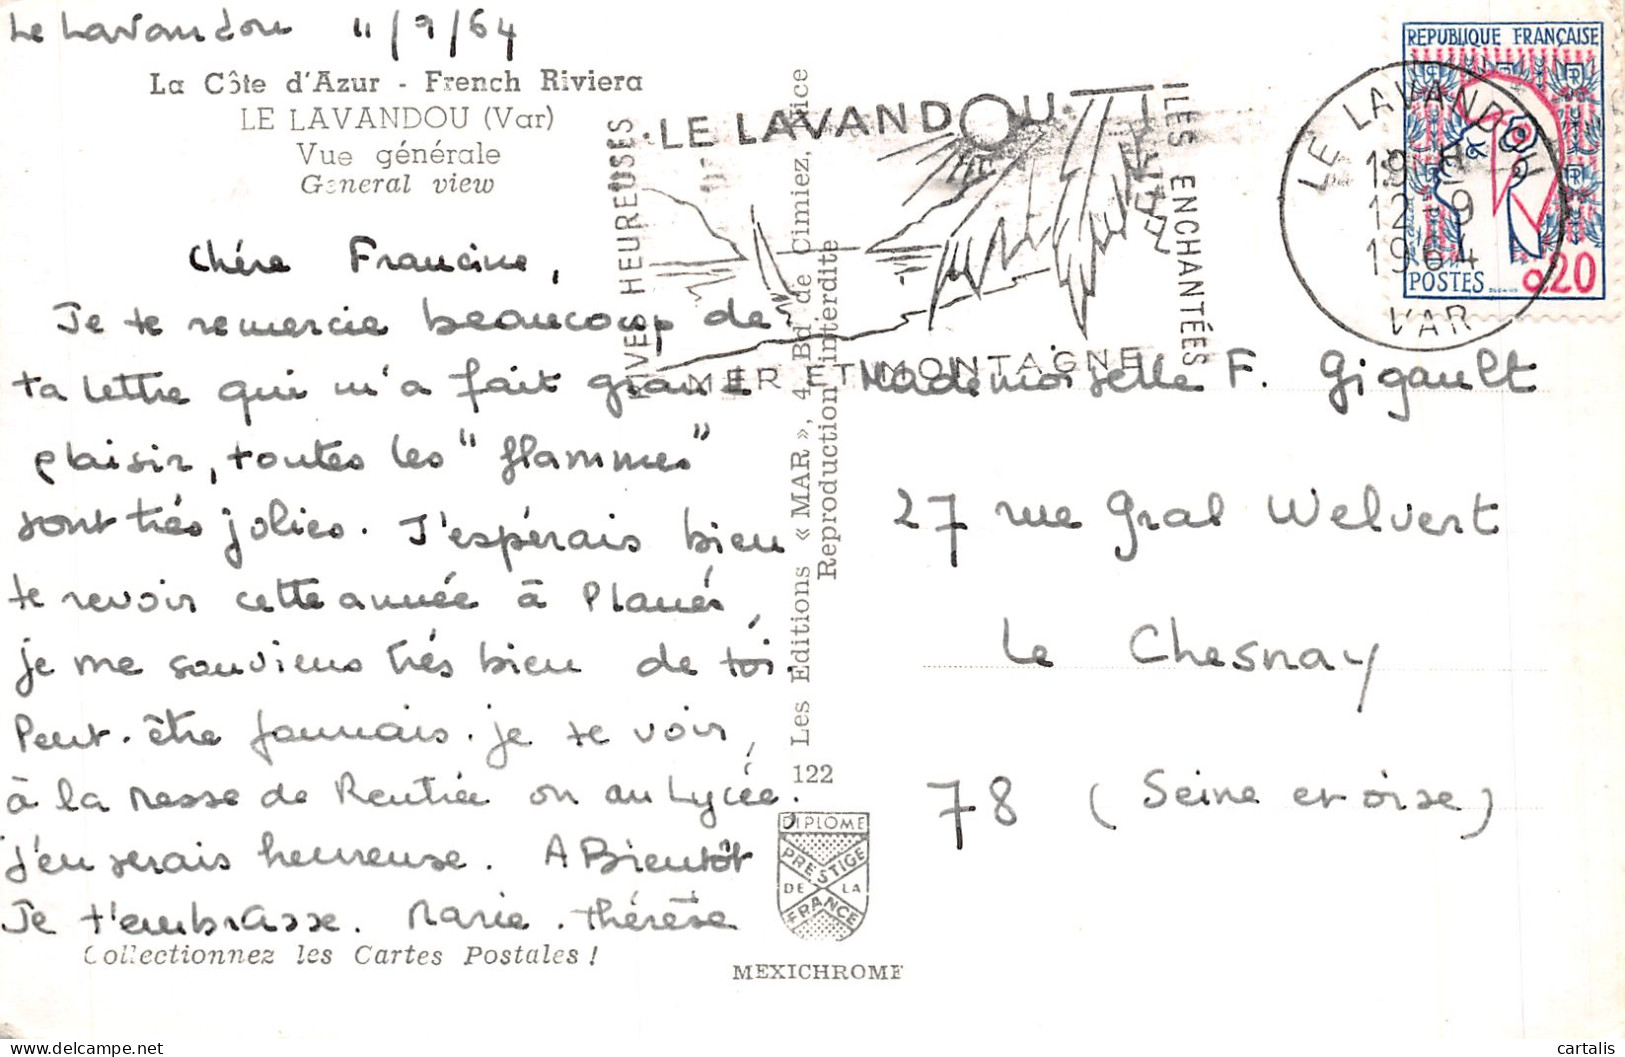 Le Lavandou 11/9/64
La Côte d'Azur - French Riviera
LE LAVANDOU (Var)
Vue générale
General view
Chère Francine,
Je te remercie beaucoup de
ta lettre qui m'a fait grand
plaisir, toutes les "flammes"
sont très jolies. J'espérais bien
te revoir cette année à Planés,
je me souviens très bien de toi.
Peut-être jamais-je te voir,
à la Messe de Rentrée ou au Lycée.
j'en serais heureuse. A Bientôt
Je t'embrasse. Marie-Thérèse
Collectionnez les Cartes Postales !
Les Editions « MAR », 4, Bd de Cimiez, Nice
Reproduction interdite
122
DIPLOME
PRESTIGE
DE LA
FRANCE
MEXICHROME
LE LAVANDOU
RIVES HEUREUSES
ILES ENCHANTÉES
MER ET MONTAGNE
REPUBLIQUE FRANÇAISE
POSTES 0,20
LE LAVANDOU
19 H
12-9
1964
VAR
Mademoiselle F. Gigault
27 rue Gral Welvert
Le Chesnay
78 (Seine et oise)
cartalis